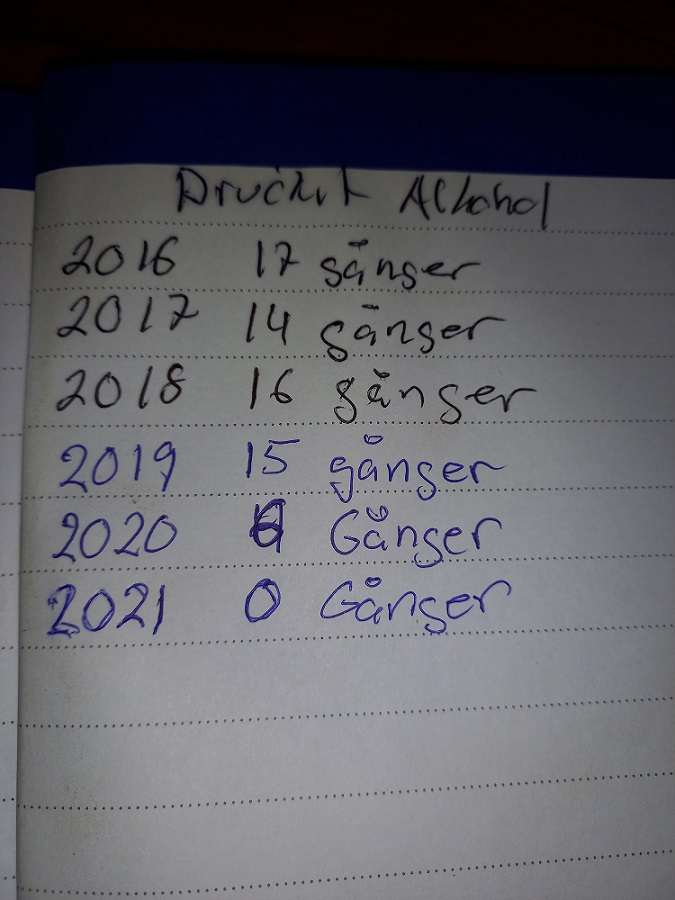 Druckit Alkohol
2016 17 gånger
2017 14 gånger
2018 16 gånger
2019 15 gånger
2020 Gånger
2021 0 Gånger